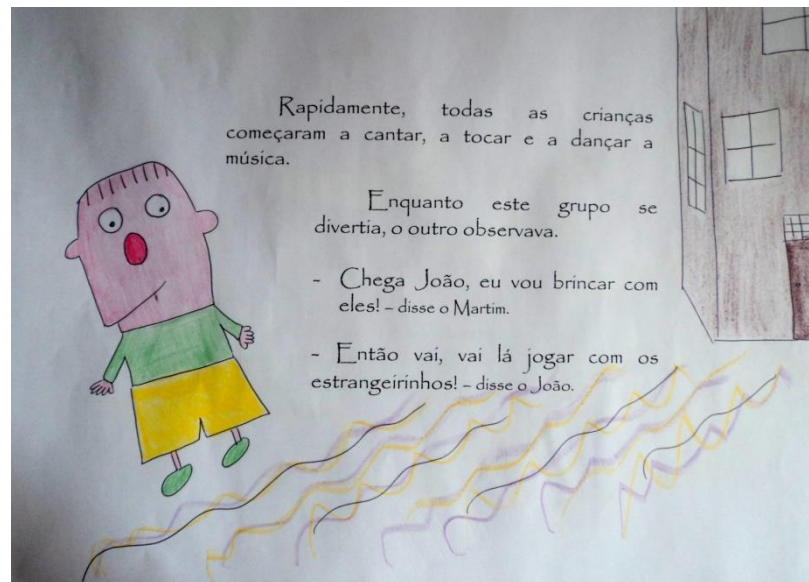 Rapidamente, todas as crianças
começaram a cantar, a tocar e a dançar a
música.
Enquanto este grupo se
divertia, o outro observava.
- Chega João, eu vou brincar com
eles! – disse o Martim.
- Então vai, vai lá jogar com os
estrangeirinhos! – disse o João.